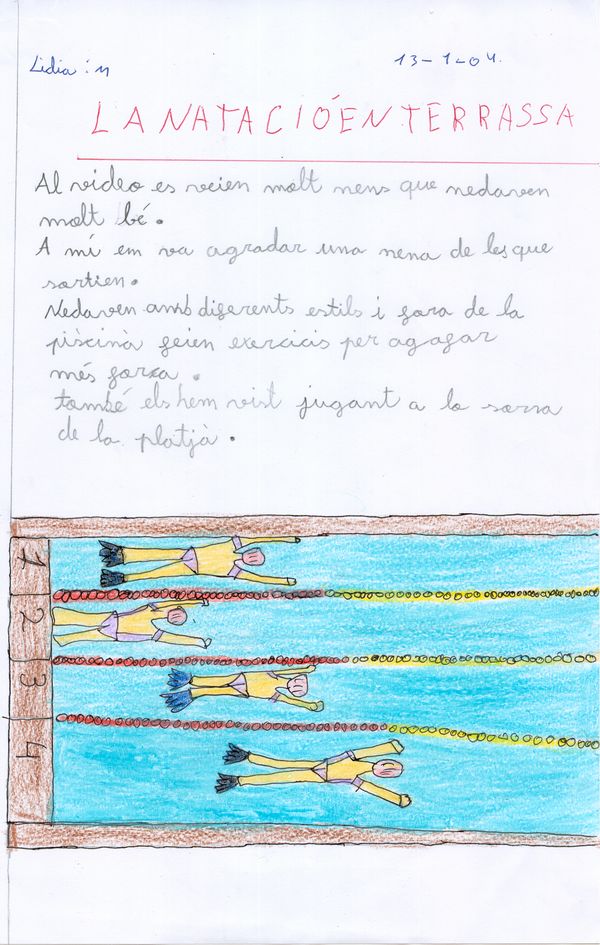 Lidia : M
13-1-04.
LA NATACIÓ EN TERRASSA
Al video es veien molt nens que nedaven
molt bé.
A mí em va agradar una nena de les que
sortien.
Nedaven amb diferents estils i fora de la
piscinà feien exercicis per agafar
més força.
també els hem vist jugant a la sorra
de la platjà.
1
2
3
4